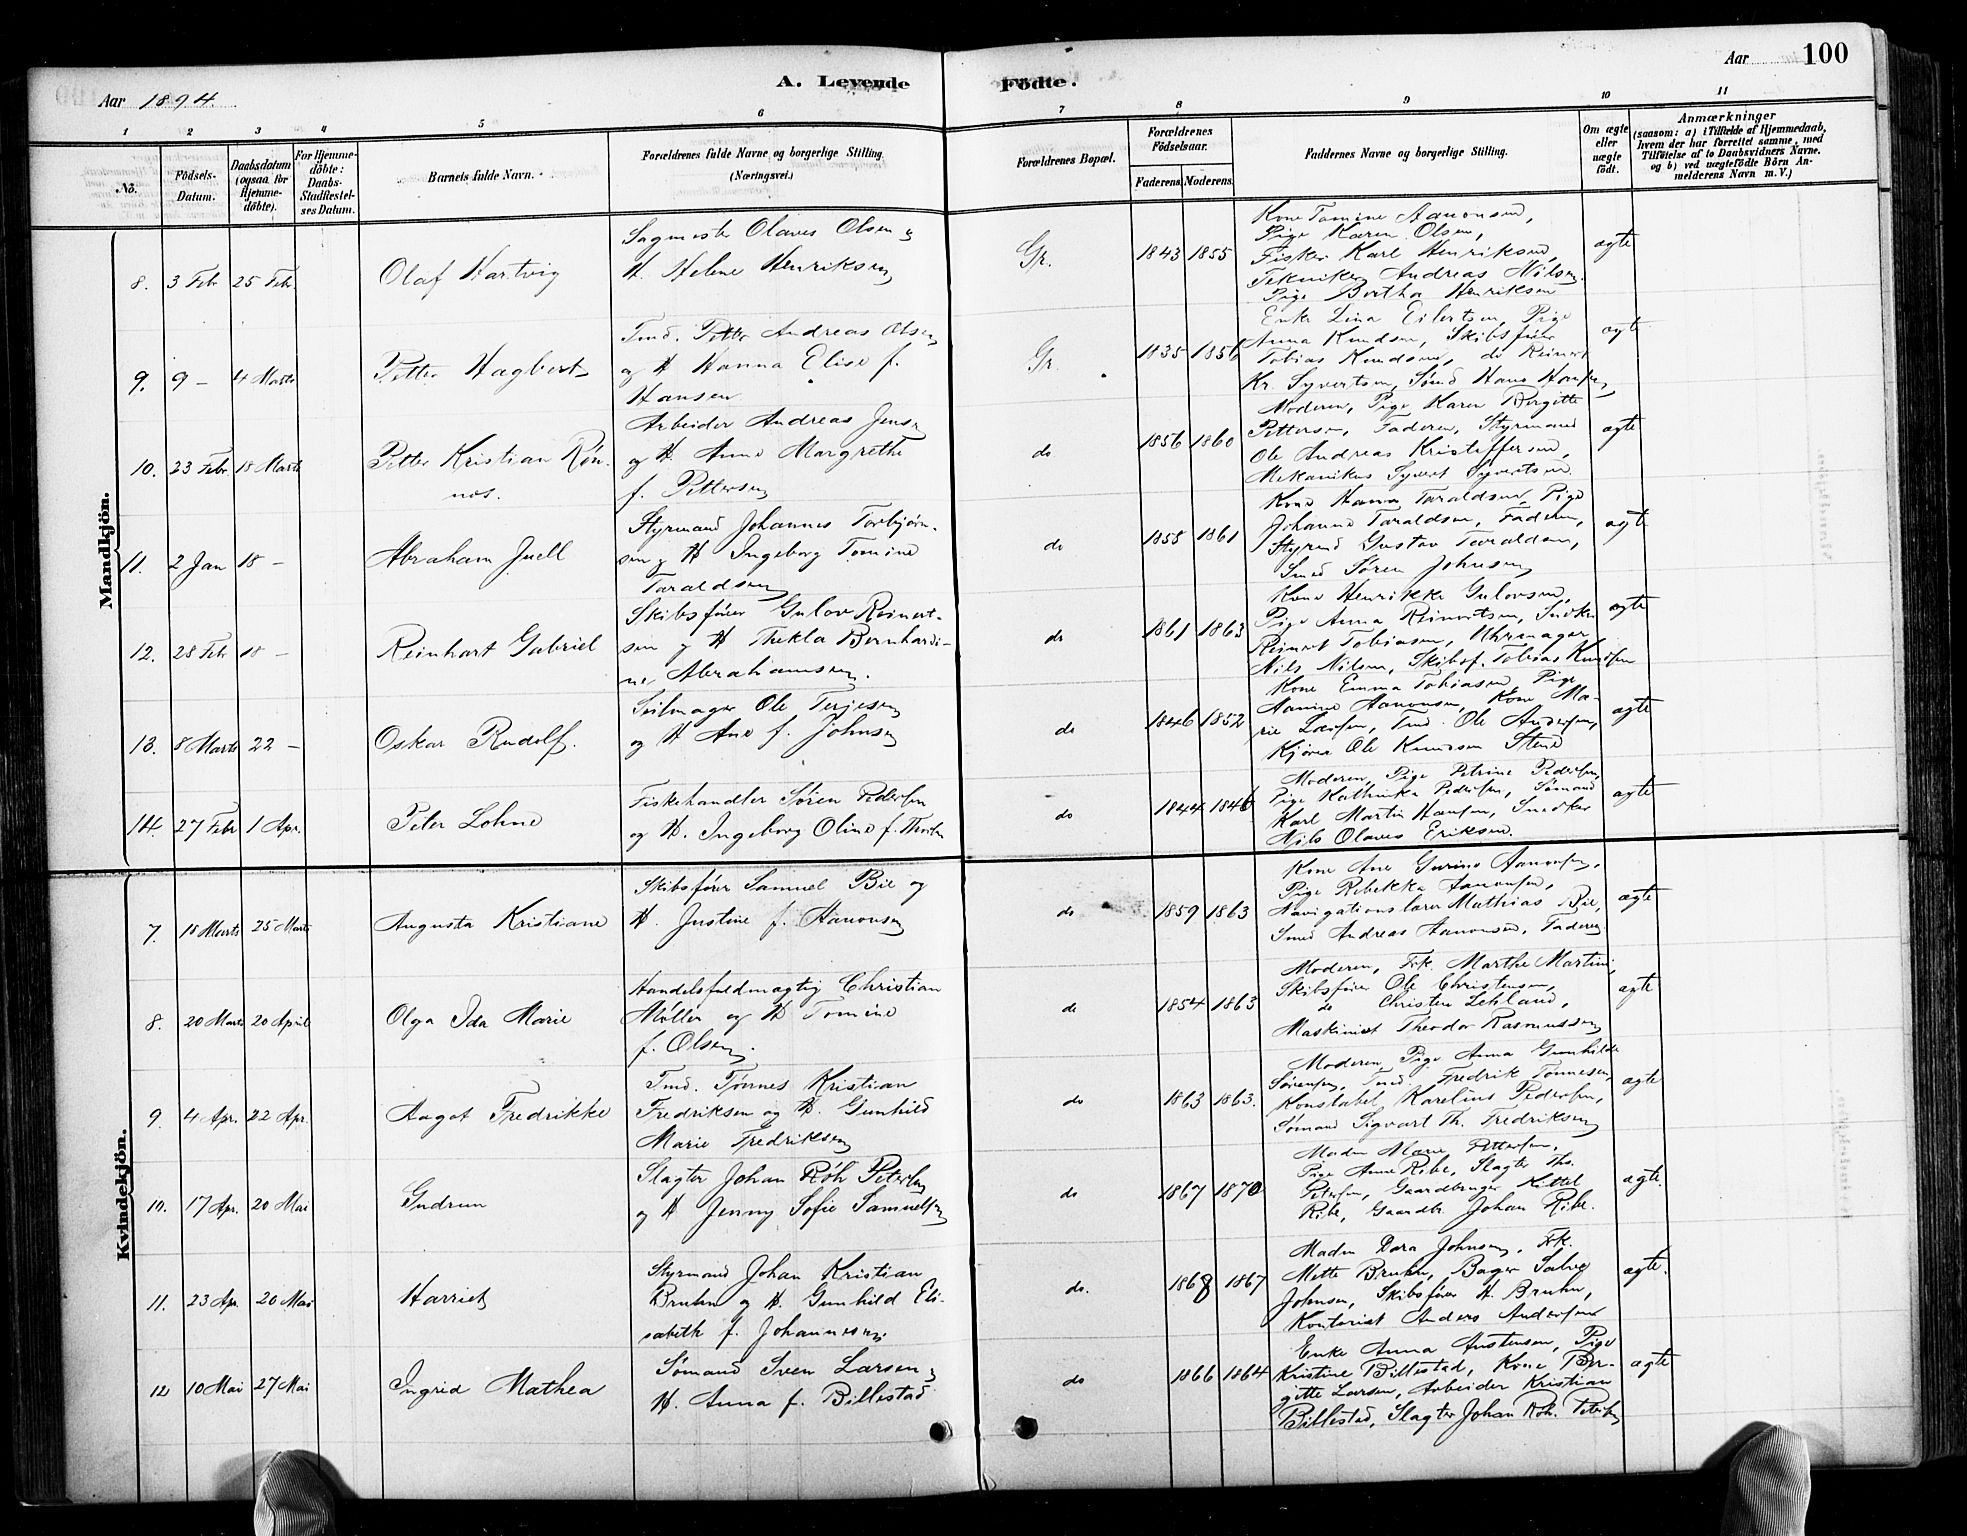 Aar 1894.
A. Levende Fødte.
Aar
100
1 2 3 4 5 6 7 8 9 10 11
No.
Fødsels-Datum.
Daabsdatum (ogsaa for Hjemmedöbte).
For Hjemmedöbte: Daabs-Stadfestelses Datum.
Barnets fulde Navn.
Forældrenes fulde Navne og borgerlige Stilling. (Næringsvei.)
Forældrenes Bopæl.
Forældrenes Fødselsaar.
Faderens. Moderens.
Faddernes Navne og borgerlige Stilling.
Om ægte eller uægte født.
Anmærkninger
(saasom: a) i Tilfælde af Hjemmedaab, hvem der har forrettet samme, med Tilføielse af to Daabsvidners Navne. og b) ved uægtefødte Börn Anmelderens Navn m. V.)
Mandkjön.
8. 3 Febr 25 Febr. Olaf Hartvig
Sagmester Olaves Olsen og
H. Helene Henriksen
Gr. 1843 1855
Kone Tomine Aanonsen,
Pige Karen Olsen,
Fisker Karl Henriksen,
Tekniker Andreas Nilsen,
Pige Bertha Henriksen
ægte
9. 9 – 4 Marts Petter Hagbert
Tmd. Petter Andreas Olsen
og H Hanna Elise f.
Hansen
Gr. 1835 1856
Enke Lina Eilertsen, Pige
Anna Knudsen, Skibsfører
Tobias Knudsen, do Reinert
Kr. Syvertsen, Sømd Hans Hansen
ægte
10. 23 Febr. 18 Marts Petter Kristian Røn-
nos.
Arbeider Andreas Jens
og H. Anne Margrethe
f. Pettersen
do 1856 1860
Moderen, Pige Karen Birgitte
Petterson, Faderen, Styrmand
Ole Andreas Kristoffersen,
Mekanikus Syvert Syvertsen
ægte
11. 2 Jan 18 – Abraham Juell
Styrmand Johannes Torbjørn-
sen og H Ingeborg Tomine
Taraldsen
do 1855 1861
Kone Hanna Taraldsen, Pige
Johanne Taraldsen, Faderen,
Styrmd Gustav Taraldsen,
Smed Søren Johnsen
ægte
12. 28 Febr 18 – Reinhart Gabriel
Skibsfører Gulov Reinert-
sen og H Thekla Bernhardi-
ne Abrahamsen.
do 1861 1863
Kone Henrikke Gulovsen,
Pige Anna Reinertsen, Snedker
Reinert Tobiasen, Uhrmager
Nils Nilsen, Skibsf. Tobias Knudsen
ægte
13. 8 Marts 22 – Oskar Rudolf.
Seilmager Ole Terjesen
og H Ane f. Johnsen
do 1846 1852
Kone Emma Tobiasen, Pige
Aanine Aanonsen, Kone Ma-
rie Larsen, Tmd. Ole Andersen,
Kjører Ole Knudsen Stene
ægte
14. 27 Febr 1 Apr. Peter Lohne
Fiskehandler Søren Pedersen
og H. Ingeborg Oline f. Thorsen
do 1844 1846
Moderen, Pige Petrine Pedersen,
Pige Kathinka Pedersen, Sømand
Karl Martin Hansen, Snedker
Nils Olaves Eriksen.
ægte
Kvindekjön.
7. 18 Marts 25 Marts Augusta Kristiane
Skibsfører Samuel Bie og
H. Justine f. Aanonsen
do 1859 1863
Kone Ane Gurine Aanonsen,
Pige Rebekka Aanonsen,
Navigationslærer Mathias Bie,
Smed Andreas Aanonsen, Faderen
ægte
8. 20 Marts 20 April Olga Ida Marie
Handelsfuldmægtig Christian
Møller og H Tomine
f. Olsen.
do 1854 1863
Moderen, Frk. Marthe Martini,
Skibsfører Ole Christensen,
do Christen Lehland,
Maskinist Theodor Rasmussen
ægte
9. 4 Apr. 22 Apr. Aagot Fredrikke
Tmd. Tønnes Kristian
Fredriksen og H. Gunhild
Marie Fredriksen
do 1863 1863.
Moderen, Pige Anna Gunhilde
Sørensen, Tmd. Fredrik Tønnesen,
Konstabel Karelius Pedersen,
Sømand Sigvart Th. Fredriksen
ægte
10. 17 Apr. 20 Mai Gudrun
Slagter Johan Röh Petersen
og H Jenny Sofie Samuelsen
do 1867 1870
Madm Marie Pettersen,
Pige Anne Ribe, Slagter Ths.
Petersen, Gaardbruger Kittel
Ribe, Gaardbr. Johan Ribe.
ægte.
11. 23 Apr. 20 Mai Harriet
Styrmand Johan Kristian
Bruhn og H. Gunhild Eli-
sabeth f. Johannesen
do. 1868 1867
Madm Dora Johnsen, Frk.
Mette Bruhn, Bager Salve
Johnsen, Skibsfører H. Bruhn,
Kontorist Anders Andersen
ægte.
12 10 Mai 27 Mai Ingrid Mathea
Sømand Sven Larsen og
H. Anna f. Billestad
do 1866 1864
Enke Anna Austensen, Pige
Kristine Billestad, Kone Bir-
gitte Larsen, Arbeider Kristian
Billestad, Slagter Johan Röh. Petersen
ægte